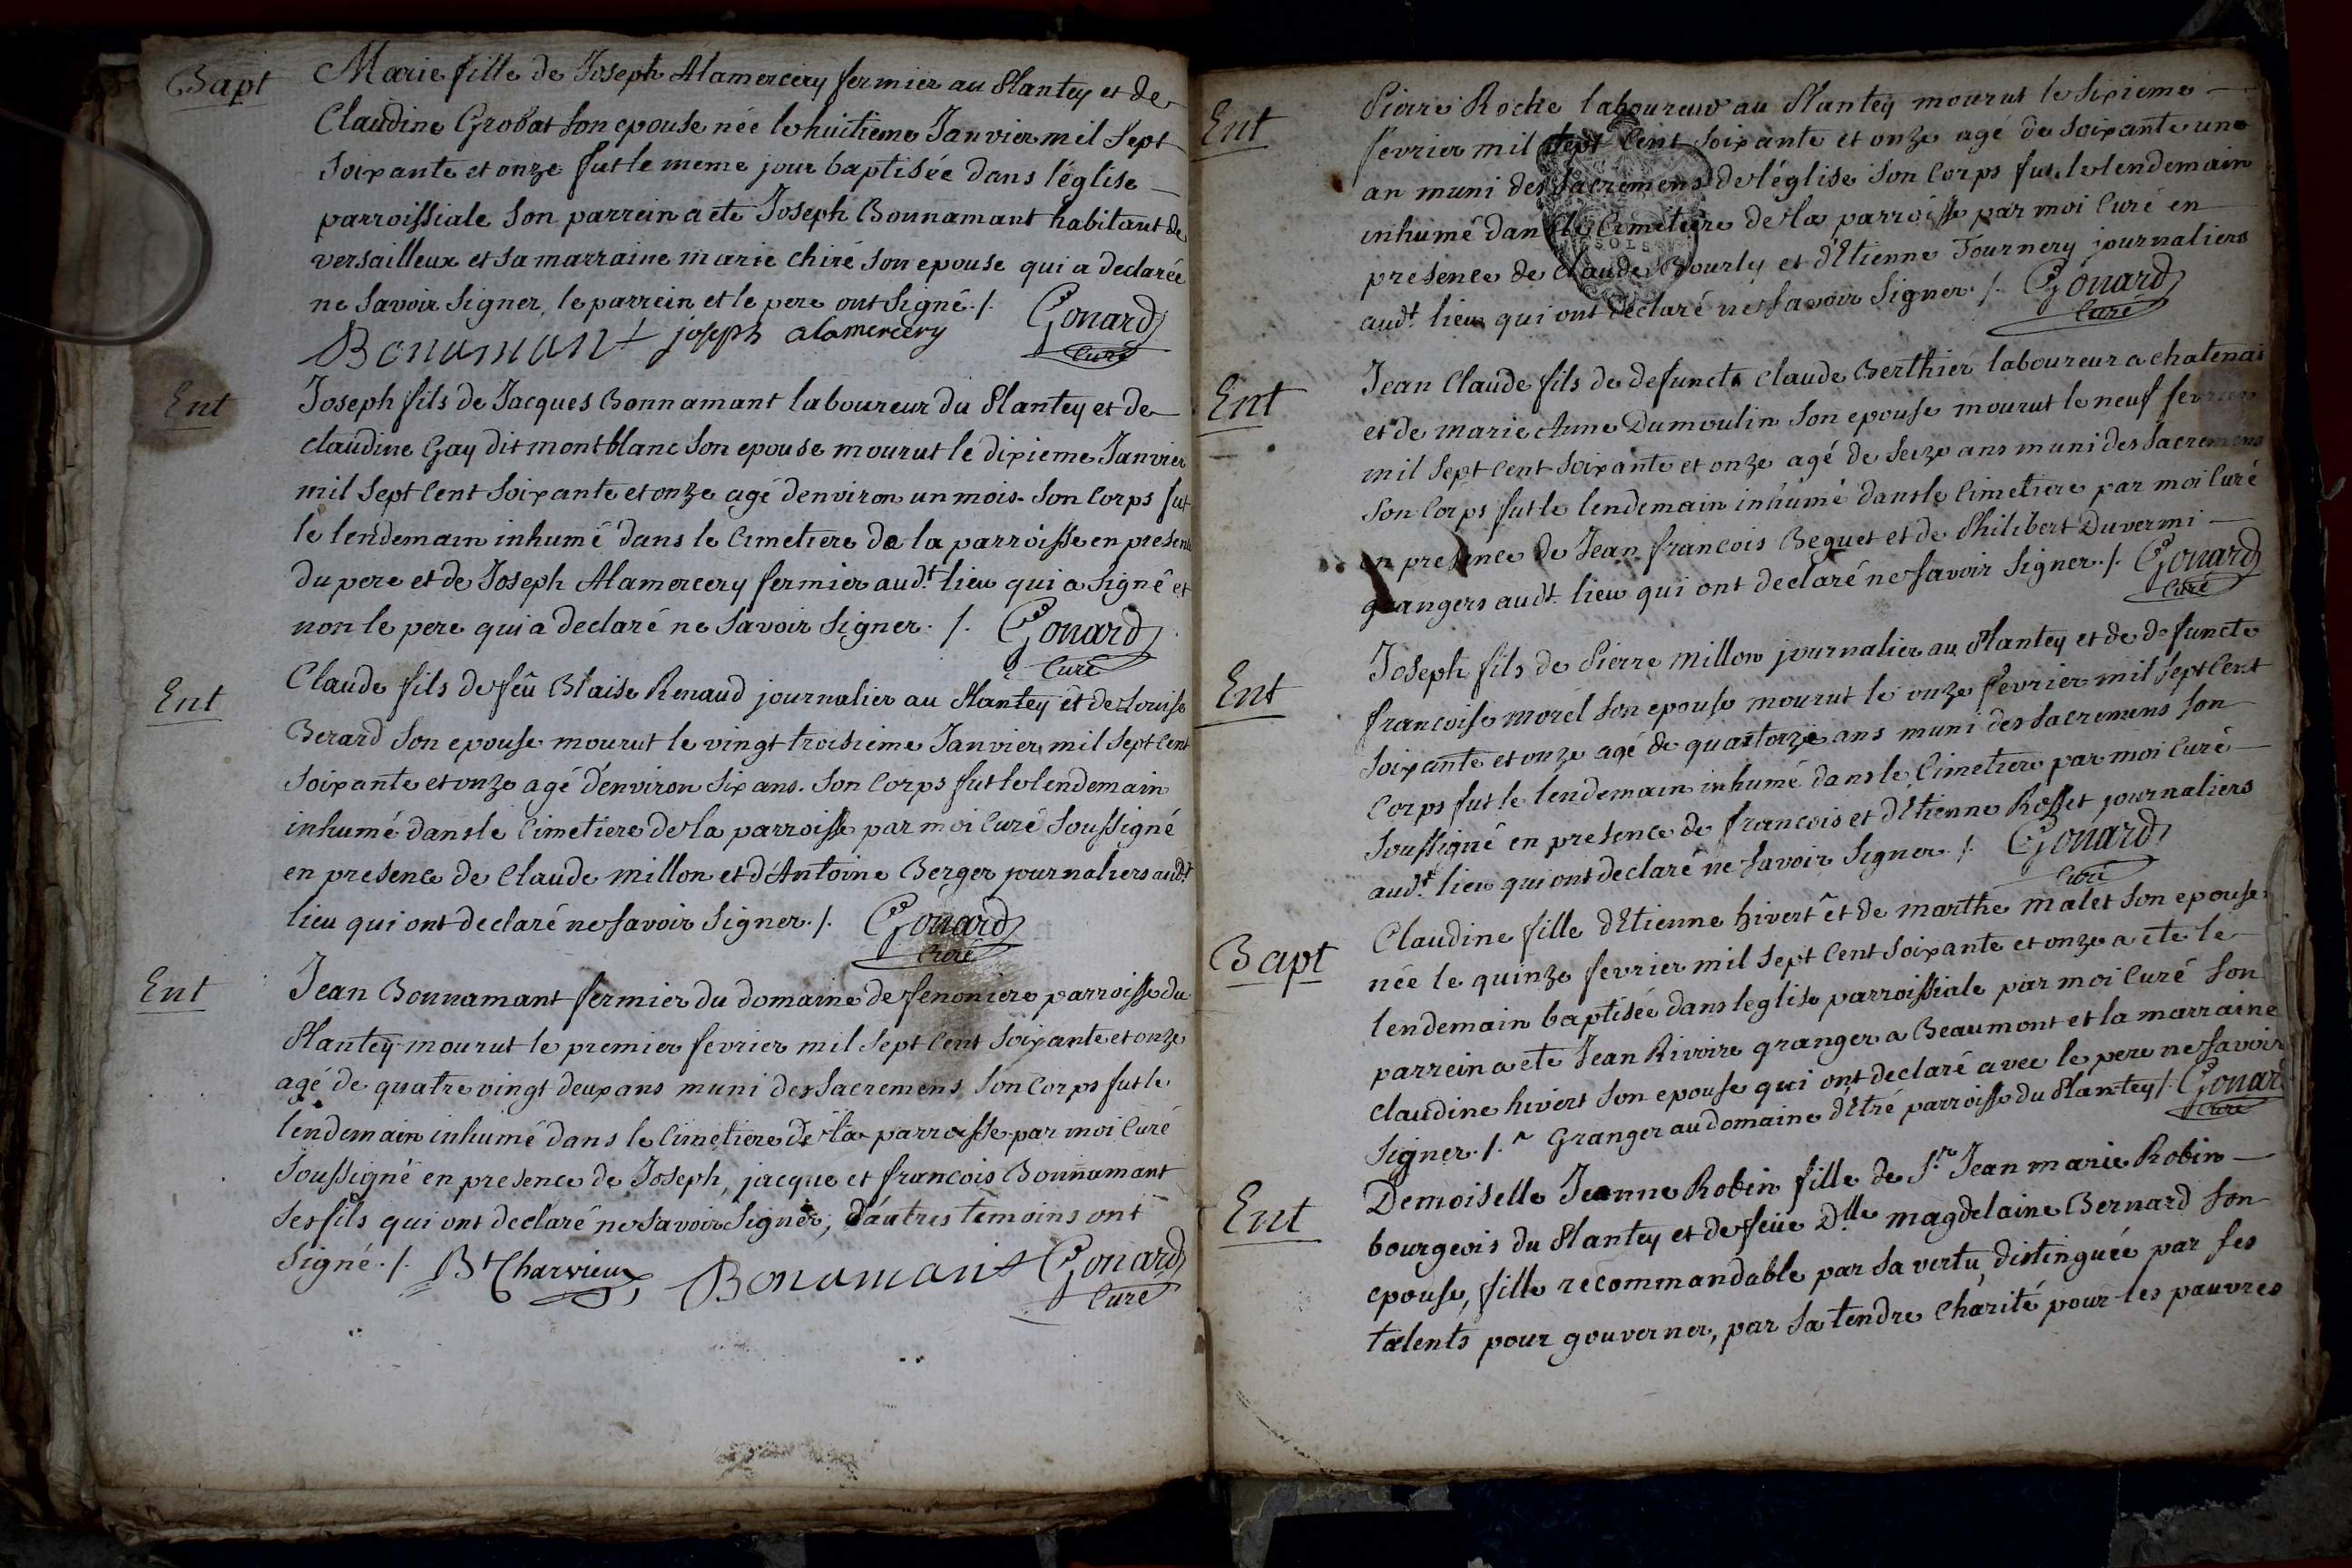 Bapt
Marie fille de Joseph Alamercery fermier au Plantey et de
Claudine Grobat son epouse née le huitieme Janvier mil sept
soixante et onze fut le meme jour baptisée dans l'église
parroissiale son parrein a ete Joseph Bonnamant habitant de
versailleux et sa marraine marie chiré son epouse qui a declarée
ne savoir signer, le parrein et le pere ont signé ./. Gonard
Bonamant joseph alamercery Curé
Ent
Joseph fils de Jacques Bonnamant laboureur du Plantey et de
claudine Gay dit montblanc son epouse mourut le dixieme Janvier
mil sept cent soixante et onze agé denviron un mois. son corps fut
le lendemain inhumé dans le cimetiere de la parroisse en presence
du pere et de Joseph Alamercery fermier audt. lieu qui a signé et
non le pere qui a declaré ne savoir signer. /. Gonard
Curé
Ent
Claude fils de feû Blaise Renaud journalier au Plantey et de Louise
Berard son epouse mourut le vingt troisieme Janvier mil sept cent
soixante et onze agé d'environ six ans. son corps fut le lendemain
inhumé dans le cimetiere de la parroisse par moi curé soussigné
en presence de Claude millon et d'Antoine Berger journaliers audt
lieu qui ont declaré ne savoir signer ./. Gonard
Curé
Ent
Jean Bonnamant fermier du domaine de fenoniere parroisse du
Plantey mourut le premier fevrier mil sept cent soixante et onze
agé de quatre vingt deux ans muni des sacremens son corps fut le
lendemain inhumé dans le cimetiere de la parroisse par moi curé
soussigné en presence de Joseph, jacque et francois Bonnamant
ses fils qui ont declaré ne savoir signer; d'autres temoins ont
signé ./. Bt Charvieux Bonamant Gonard
Curé
Ent
Pierre Roche laboureur au Plantey mourut le sixieme
fevrier mil sept cent soixante et onze agé de soixante une
an muni des sacremens de l'église son corps fut le lendemain
inhumé dans le cimetiere de la parroisse par moi curé en
presence de claude Bourly et d'Etienne Tournery journaliers
audt. lieu qui ont declaré ne savoir signer. /. Gonard
Curé
Ent
Jean Claude fils de defunct claude Berthier laboureur a chatenai
et de marie Anne Dumoulin son epouse mourut le neuf fevrier
mil sept cent soixante et onze agé de seize ans muni des sacremens
son corps fut le lendemain inhumé dans le cimetiere par moi curé
en presence de Jean francois Beguet et de Philibert Duvermi
grangers audt. lieu qui ont declaré ne savoir signer ./. Gonard
Curé
Ent
Joseph fils de Pierre millon journalier au Plantey et de defuncte
francoise morel son epouse mourut le onze fevrier mil sept cent
soixante et onze agé de quatorze ans muni des sacremens son
corps fut le lendemain inhumé dans le cimetiere par moi curé
soussigné en presence de francois et d'Etienne Rosset journaliers
audt. lieu qui ont declaré ne savoir signer. /. Gonard
Curé
Bapt
Claudine fille d'Etienne hivert et de marthe malet son epouse
née le quinze fevrier mil sept cent soixante et onze a ete le
lendemain baptisée dans leglise parroissiale par moi curé son
parrein a ete Jean Rivoire granger a Beaumont et la marraine
claudine hivert son epouse qui ont declaré avec le pere ne savoir
signer. /. Granger au domaine d'Etré parroisse du Plantey /. Gonard
Curé
Ent
Demoiselle Jeanne Robin fille de Sr. Jean marie Robin
bourgeois du Plantey et de feüe Dlle magdelaine Bernard son
epouse, fille recommandable par sa vertu, distinguée par ses
talents pour gouverner, par sa tendre charité pour les pauvres